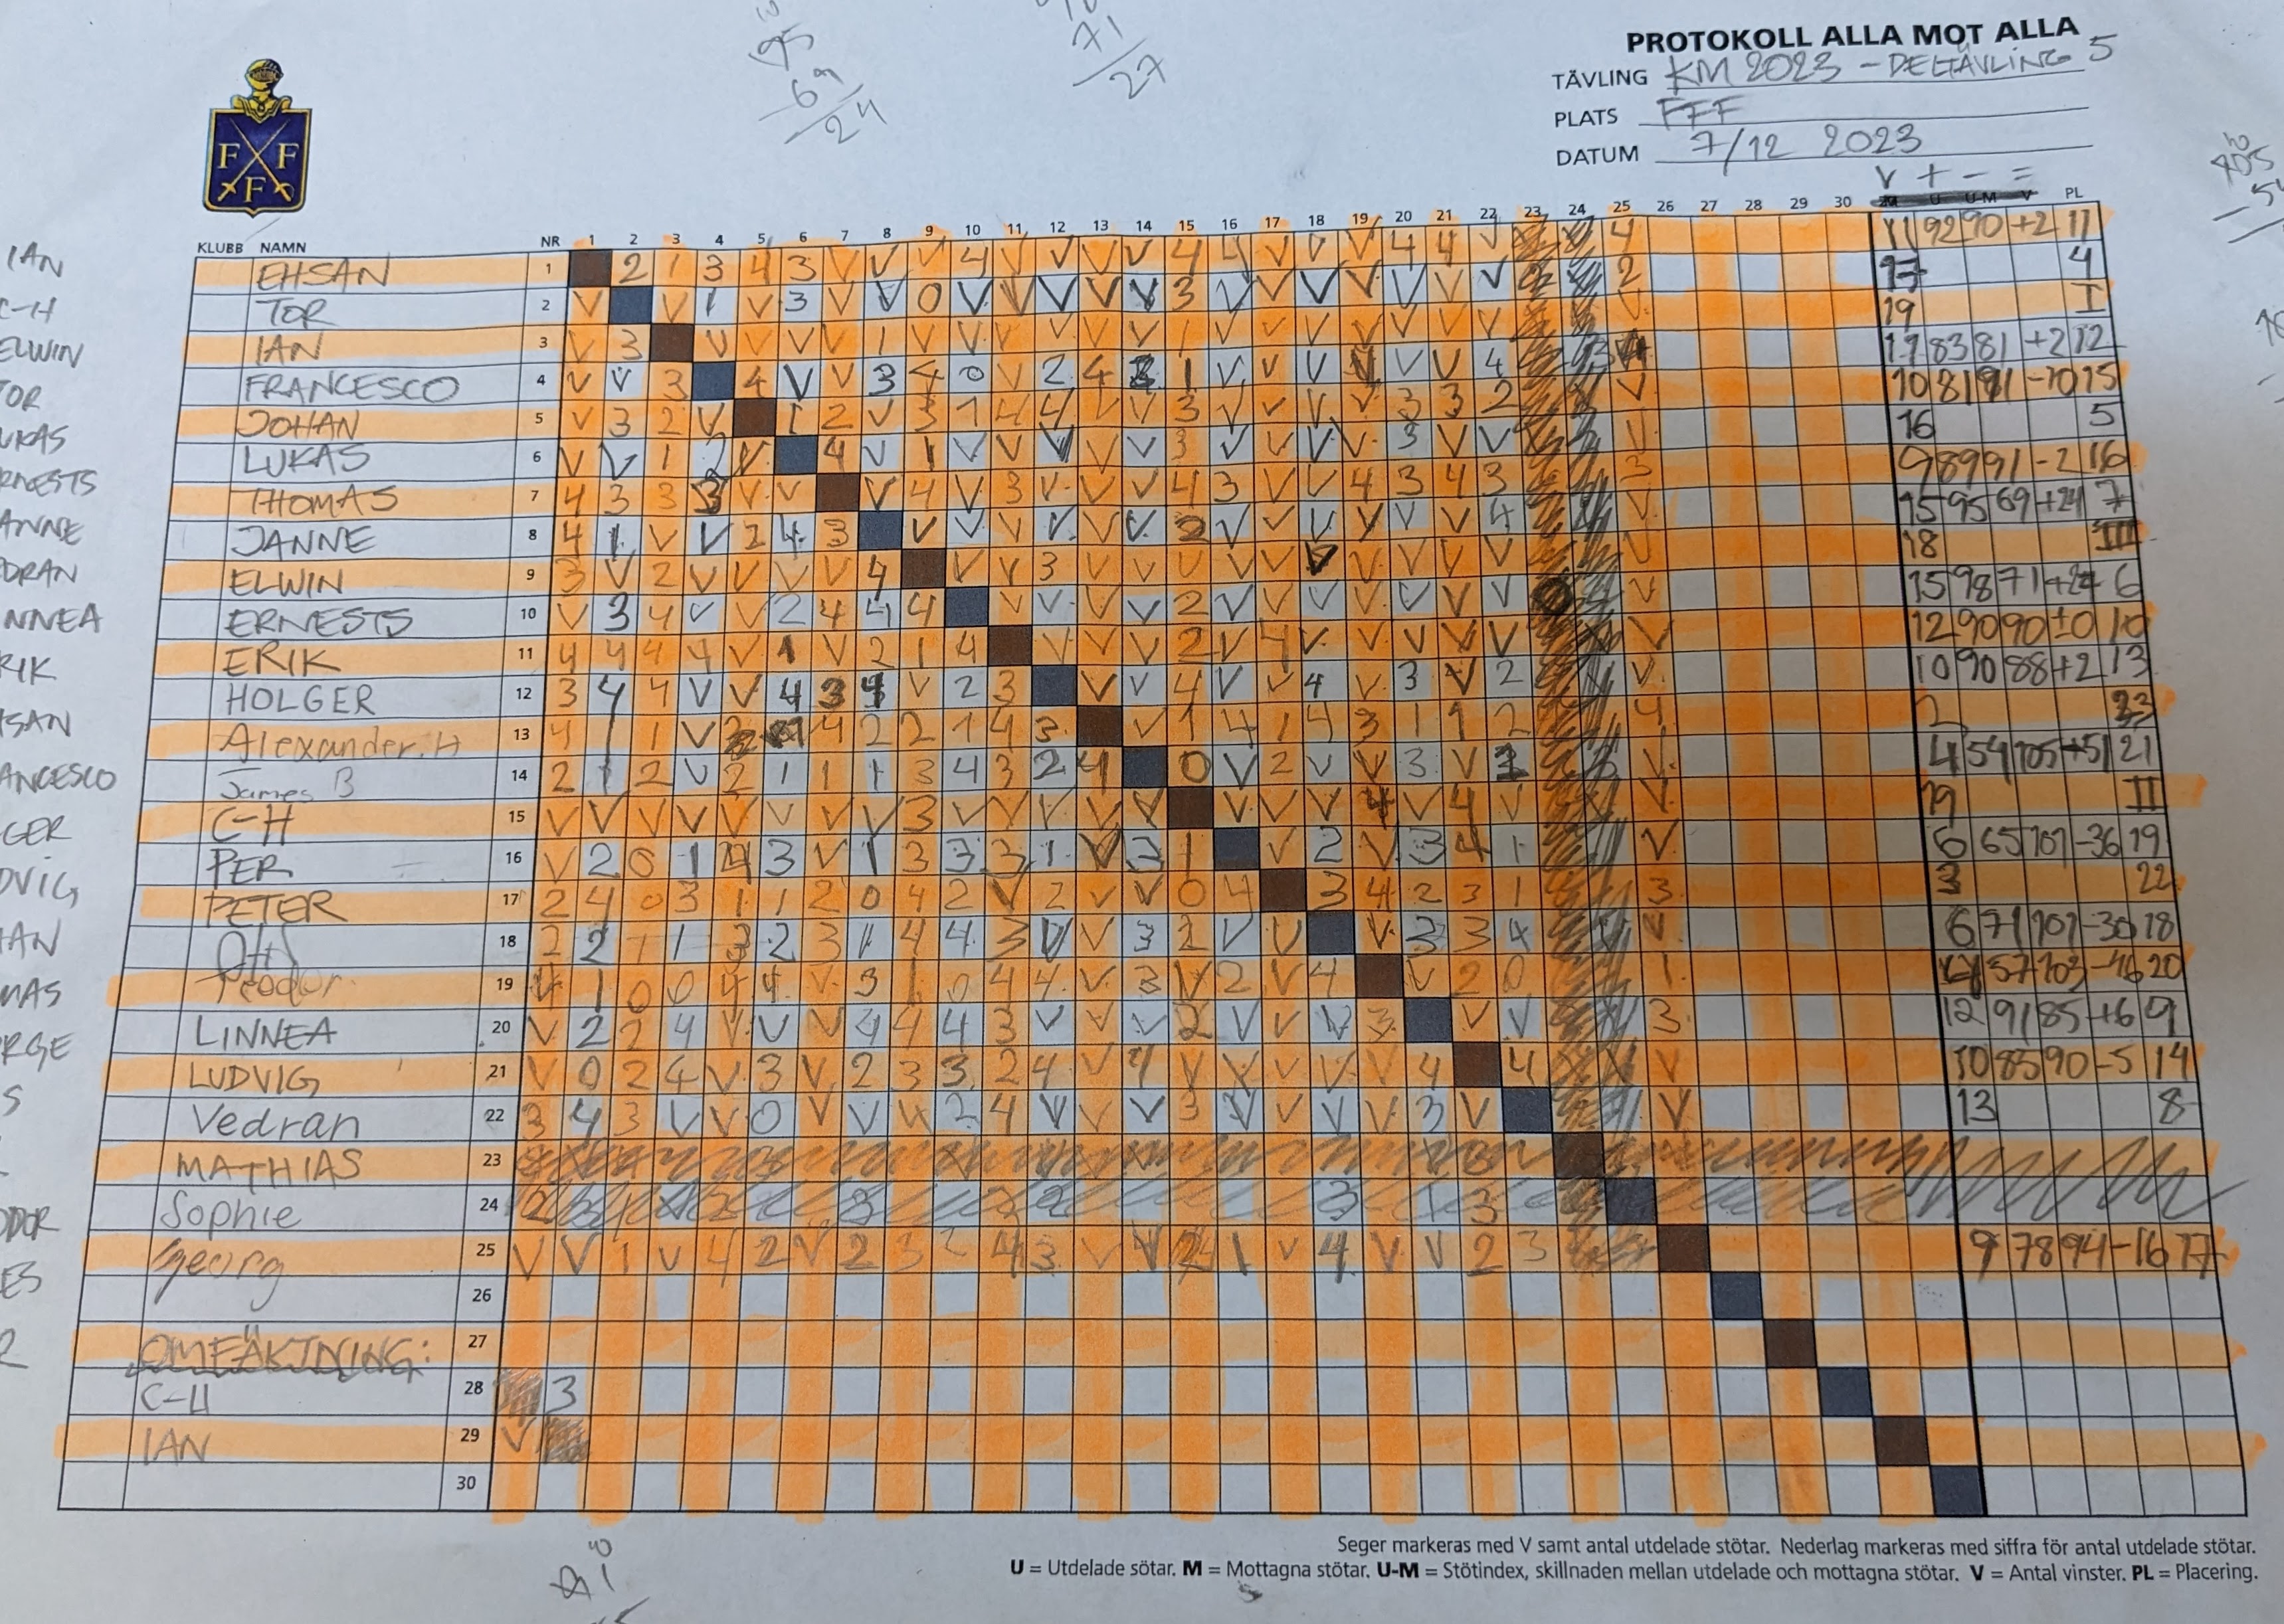 PROTOKOLL ALLA MOT ALLA
TÄVLING KM 2023 - DELTÄVLING 5
PLATS FFF
DATUM 7/12 2023
V + - =
F F F
95
69
24
71
27
KLUBB NAMN NR 1 2 3 4 5 6 7 8 9 10 11 12 13 14 15 16 17 18 19 20 21 22 23 24 25 26 27 28 29 30 PL
EHSAN 1 2 1 3 4 3 V V V 4 V V V V 4 4 V V V 4 4 V 4 11 92 90 +2 11
TOR 2 V V 1 V 3 V V 0 V V V V V 3 V V V V V V V 2 17 4
IAN 3 V 3 V V V V 1 V V V V V V 1 V V V V V V V V 19 I
FRANCESCO 4 V V 3 4 V V 3 4 0 V 2 4 1 V V V V V V 4 11 83 81 +2 12
JOHAN 5 V 3 2 V 1 2 V 3 1 4 4 V V 3 V V V V 3 3 2 V 10 81 91 -10 15
LUKAS 6 V V 1 V 4 V 1 V V V V V 3 V V V V 3 V V V 16 5
THOMAS 7 4 3 3 3 V V V 4 V 3 V V V 4 3 V V 4 3 4 3 3 9 89 91 -2 16
JANNE 8 4 1 V V 2 4 3 V V V V V V 2 V V V V V V 4 V 15 95 69 +24 7
ELWIN 9 3 V 2 V V V V 4 V V 3 V V V V V V V V V V V 18 III
ERNESTS 10 V 3 4 V V 2 4 4 4 V V V V 2 V V V V V V V V 15 98 71 +27 6
ERIK 11 4 4 4 4 V 1 V 2 1 4 V V V 2 V 4 V V V V V V 12 90 90 ±0 10
HOLGER 12 3 4 4 V V 4 3 4 V 2 3 V V 4 V V 4 V 3 V 2 V 10 90 88 +2 13
Alexander.H 13 4 1 1 V 4 2 2 1 4 3 V 1 4 1 4 3 1 1 2 4 2 23
James B 14 2 1 2 V 2 1 1 1 3 4 3 2 4 0 V 2 V V 3 V V 4 54 105 -51 21
C-H 15 V V V V V V V V 3 V V V V V V V V 4 V 4 V V 19 II
PER 16 V 2 0 1 4 3 V 1 3 3 3 1 V 3 1 V 2 V 3 4 1 V 6 65 101 -36 19
PETER 17 2 4 0 3 1 1 2 0 4 2 V 2 V V 0 4 3 4 2 3 1 3 3 22
18 2 2 1 1 3 2 3 1 4 4 3 V V 3 2 V V V 3 3 4 V 6 71 101 -30 18
Teodor 19 4 1 0 0 4 4 V 3 1 0 4 4 V 3 V 2 V 4 V 2 0 1 57 103 -46 20
LINNEA 20 V 2 2 4 V V V 4 4 4 3 V V V 2 V V V 3 V V 3 12 91 85 +6 9
LUDVIG 21 V 0 2 4 V 3 V 2 3 3 2 4 V 4 V V V V V 4 4 V 10 85 90 -5 14
Vedran 22 3 4 3 V V 0 V V V 2 4 V V V 3 V V V V 3 V V 13 8
MATHIAS 23
Sophie 24
Georg 25 V V 1 V 4 2 V 2 3 2 4 3 V V 2 1 V 4 V V 2 3 9 78 94 -16 17
26
OMFÄKTNING: 27
C-H 28 3
IAN 29 V
30
Seger markeras med V samt antal utdelade stötar. Nederlag markeras med siffra för antal utdelade stötar.
U = Utdelade sötar. M = Mottagna stötar. U-M = Stötindex, skillnaden mellan utdelade och mottagna stötar. V = Antal vinster. PL = Placering.
IAN
C-H
ELWIN